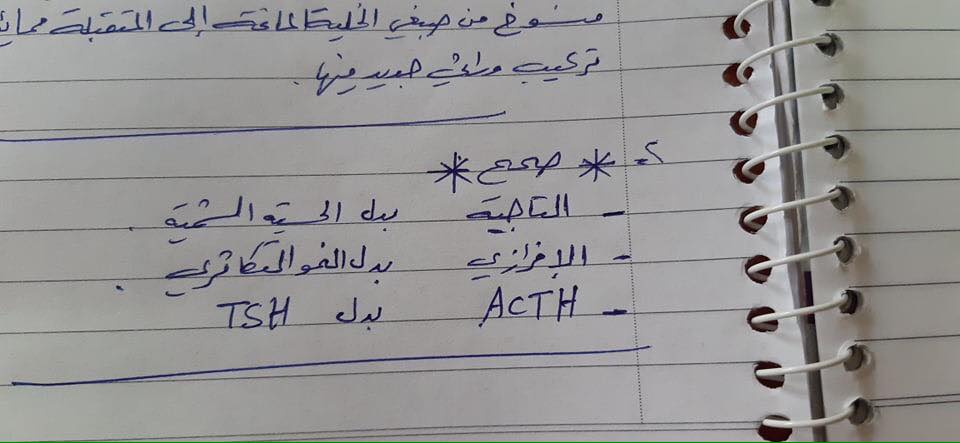 منسوخ من صبغي الخلية المانحة إلى المتقبلة مما يؤ
تركيب وراثي جديد فيها.
2- * صحح *
- التاجية بدل الحسية الشمية.
- الإفرازي بدل النمو التكاثري.
- ACTH بدل TSH